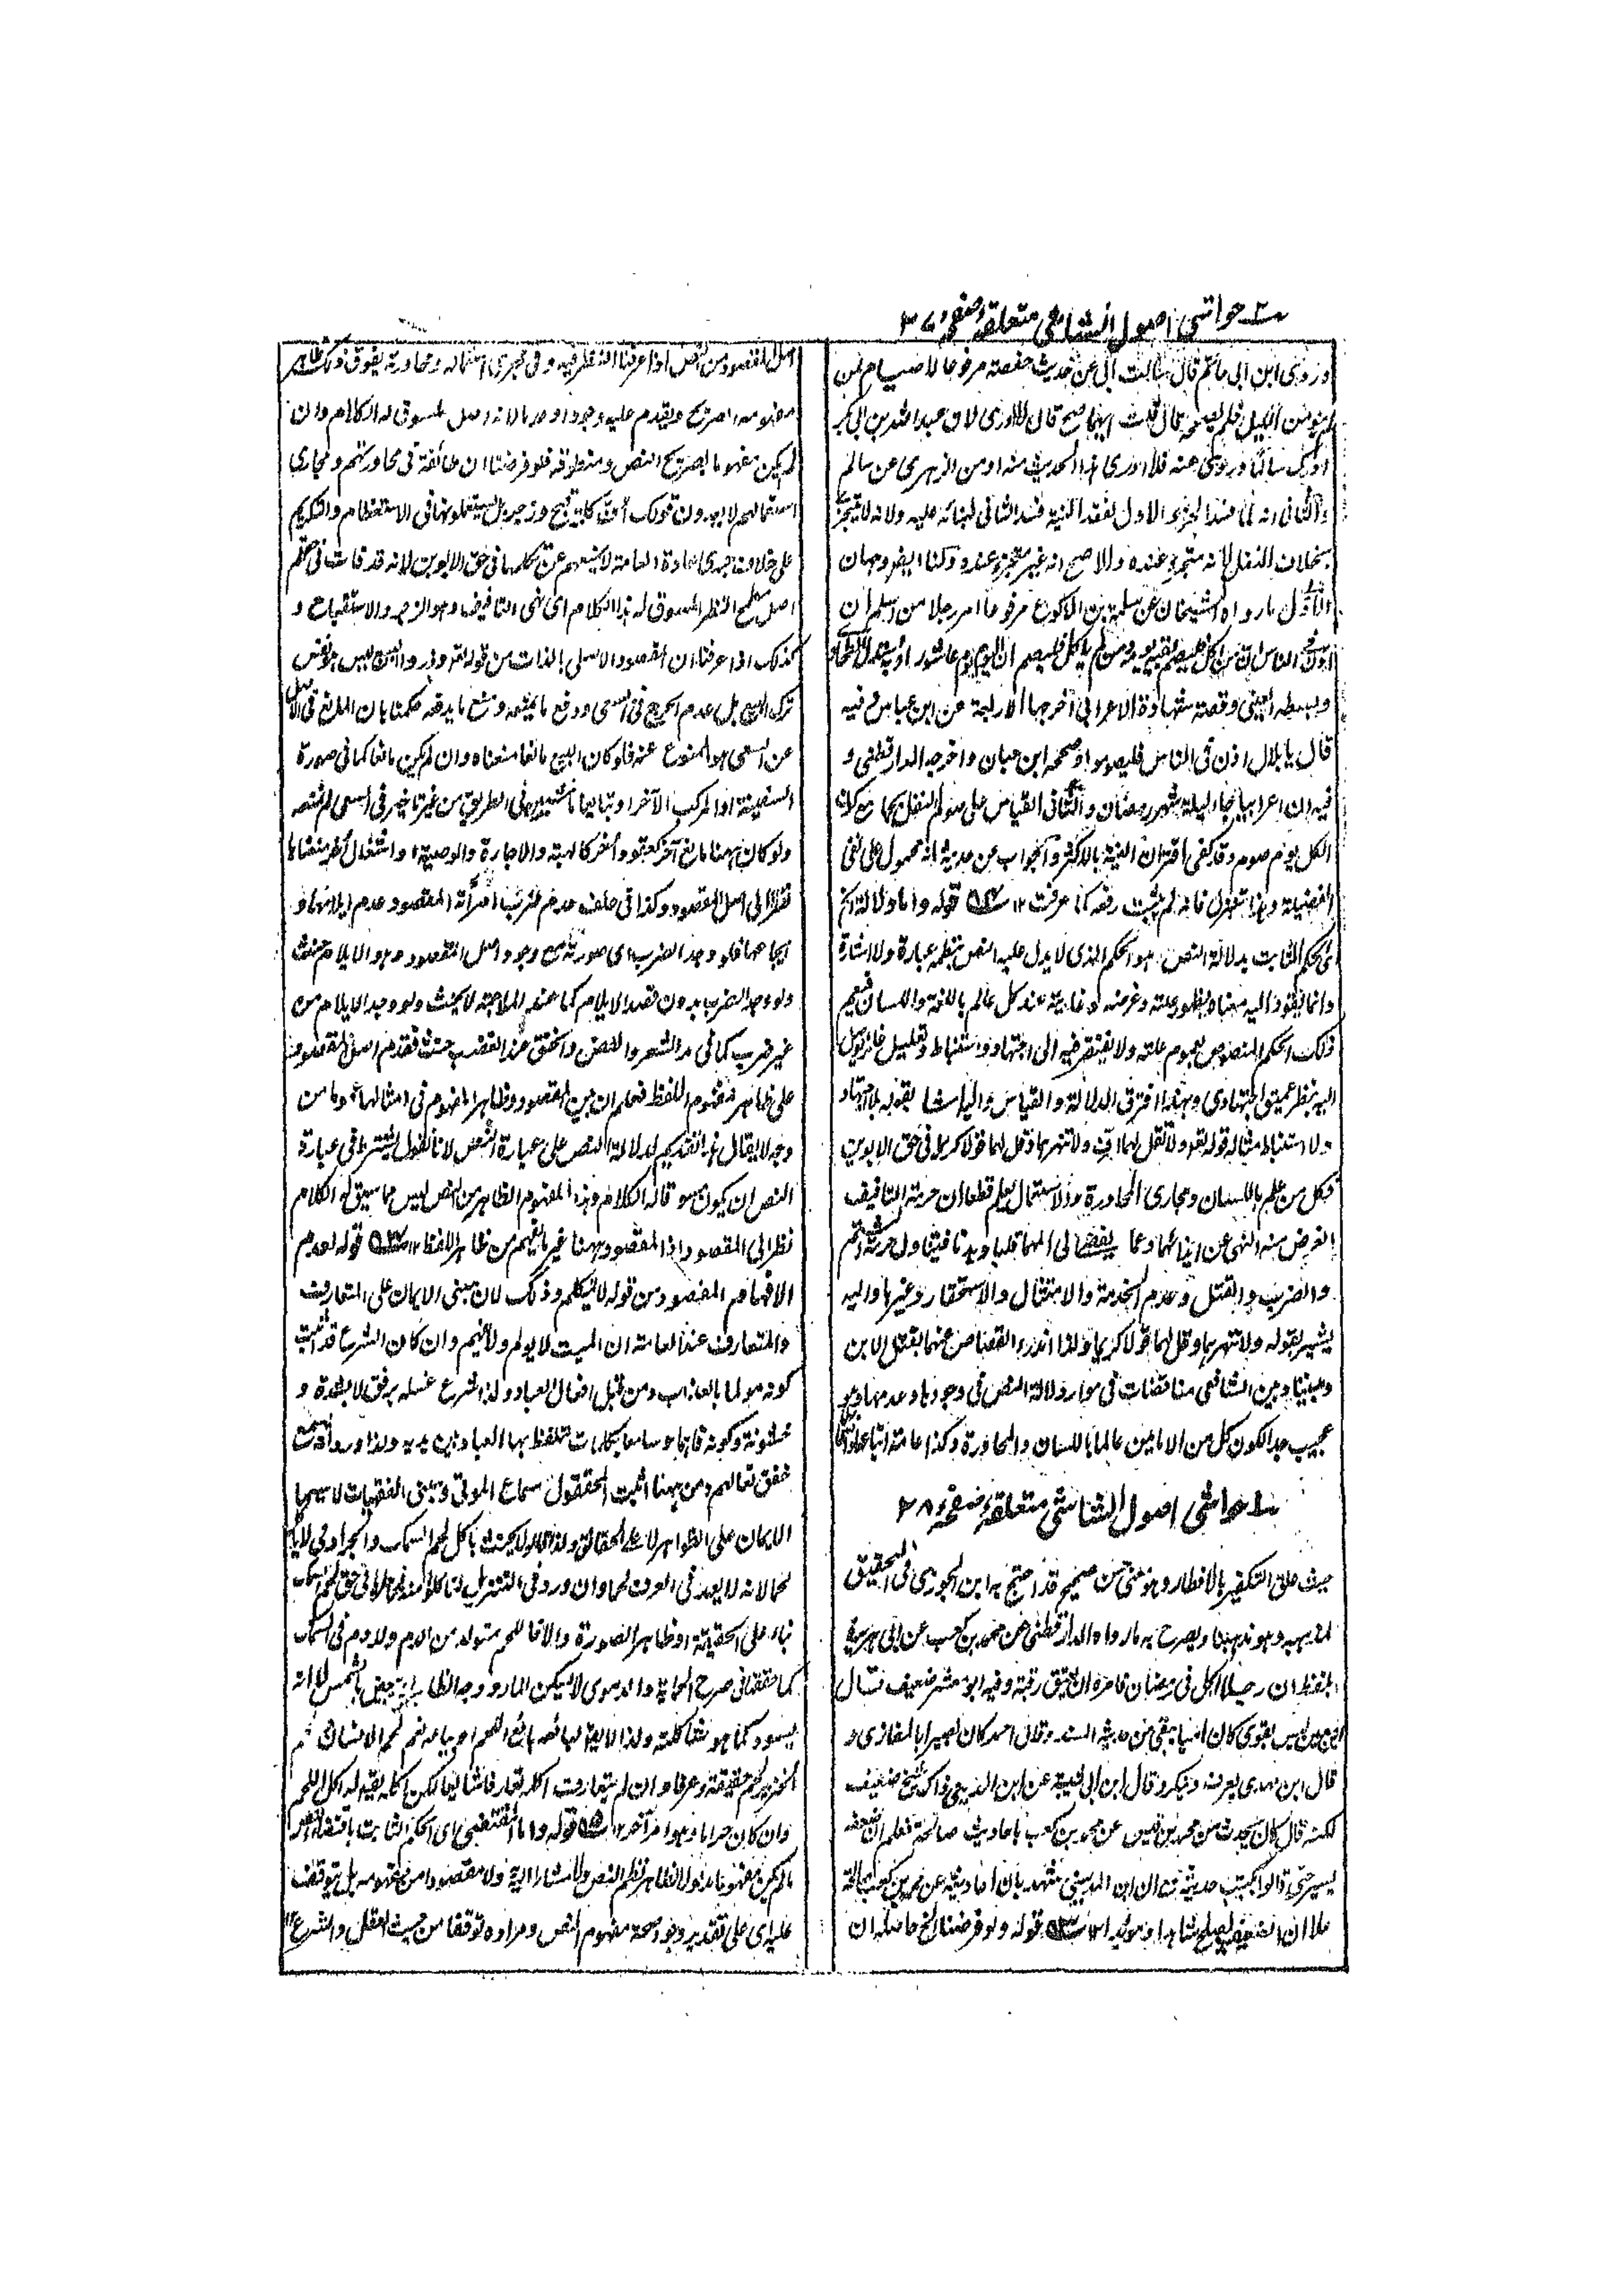 حواشى اصول الشاشى متعلقه صفحه ٢٧
وروى ابن ابى حاتم قال سالت ابى عن حديث حفصة مرفوعا لا صيام لمن
لم ينو من الليل
ادرك سالما وروى عنه فلا ادرى الحديث منه او من الزهرى عن سالم
والثانى انه لما فسد الجزء الاول لفقد النية فسد الثانى لبنائه عليه ولانه لا يتجزى
بخلاف النفل لانه متجزء عنده والاصح انه غير متجزء عنده ولنا ايضا وجهان
الاول ما رواه الشيخان عن سلمة بن الاكوع مرفوعا امر رجلا من اسلم ان
اذن فى الناس ان من اكل فليصم بقية يومه ومن لم ياكل فليصم ان اليوم يوم عاشوراء
وبسطه العينى وقصة شهادة الاعرابى اخرجها الاربعة عن ابن عباس فيه
قال يا بلال اذن فى الناس فليصوموا وصححه ابن حبان واخرجه الدارقطنى و
فيه ان اعرابيا جاء ليلة شهر رمضان والثانى القياس على صوم النفل بجامع كون
الكل يوم صوم وقد كفى اقتران النية بالاكثر والجواب عن حديثه انه محمول على نفى
الفضيلة وهذا تنزل فانه لم يثبت رفعه كما عرفت ١٢ قوله واما دلالة الخ
اى الحكم الثابت بدلالة النص هو الحكم الذى لا يدل عليه النص بنظمه عبارة ولا اشارة
وانما يقود اليه معناه بظهور علته وغرضه او غايته عند كل عالم باللغة واللسان فيعم
ذلك الحكم المنصوص بعموم علته ولا يفتقر فيه الى اجتهاد واستنباط وتعليل
اليه بنظر عميق اجتهادى وبهذا افترق الدلالة والقياس واليه اشار بقوله لا اجتهادا
ولا استنباطا مثاله قوله تعالى ولا تقل لهما اف ولا تنهرهما وقل لهما قولا كريما فى حق الابوين
فكل من علم باللسان ومجارى المحاورة والاستعمال يعلم قطعا ان حرمة التافيف
الغرض منه النهى عن ايذائهما وعما يفضى الى المهما قلبا وبدنا فيتناول حرمة الشتم
والضرب والقتل وعدم الخدمة والامتثال والاستحقار وغيرها واليه
يشير بقوله ولا تنهرهما وقل لهما قولا كريما ولذا اندرء القصاص عنهما بقتل الابن
وبيننا وبين الشافعى مناقضات فى موارد دلالة النص فى وجودها وعدمها وهو
عجيب جدا لكون كل من الامامين عالما باللسان والمحاورة وكذا عامة اتباعهما
حواشى اصول الشاشى متعلقه صفحه ٢٨
حيث علق التكفير بالافطار وهو متن صحيح قد احتج به ابن الجوزى فى التحقيق
لمذهبه وهو مذهبنا ويصرح به ما رواه الدارقطنى عن محمد بن كعب عن ابى هريرة
بلفظ ان رجلا اكل فى رمضان فامره ان يعتق رقبة وفيه ابو معشر ضعيف قال
ابن معين ليس بقوى كان اميا يتقى من حديثه المسند وقال احمد كان بصيرا بالمغازى و
قال ابن مهدى يعرف وينكر وقال ابن ابى شيبة عن ابن المدينى ذاك شيخ ضعيف
لكنه قال كان يحدث عن محمد بن قيس عن محمد بن كعب باحاديث صالحة فعلم ان ضعفه
يسير حتى قالوا يكتب حديثه ثم ان ابن المدينى شهد بان احاديثه عن محمد بن كعب صالحة
علا ان الضعيف يصلح شاهدا ومؤيدا ١٢ قوله ولو فرضنا الخ حاصله ان
اصل المقصود من النص اذا عرفنا النظر فيه وفى مجرى استعماله ومحاورته يفوق ذلك ظاهر
مفهومه الصريح ويقدم عليه وجودا وعدما لانه اصل المسوق له الكلام وان
لم يكن مفهوما بصريح النص ومنطوقه فلو فرضنا ان طائفة فى محاورتهم ومجارى
استعمالهم لا يعدون قولك اف كلمة قبيح وزجر بل يستعملونها فى الاستعظام والتكريم
على خلاف مجرى العادة العامة لا يمنعهم عن تكلمها فى حق الابوين لانه قد فات فى حقهم
اصل مطمح النظر المسوق له هذا الكلام اى نهى التافيف وهو الزجر والاستقباح و
كذلك اذا عرفنا ان المقصود الاصلى بالذات من قوله تعالى وذروا البيع ليس هو نفس
ترك البيع بل عدم الحرج فى السعى ودفع ما يمنعه ومنع ما يدفعه حكمنا بان المانع فى الاصل
عن السعى هو الممنوع عنه فلو كان البيع مانعا منعناه وان لم يكن مانعا كما فى صورة
السفينة او المركب الآخر او تبايعا ماشيين فى الطريق من غير تاخير فى السعى لم نمنعه
ولو كان ههنا مانع آخر كعقود أخر كالهبة والاجارة والوصية واشتغال آخر منعناها
نظرا الى اصل المقصود وكذا فى حلف عدم ضرب امرأته المقصود عدم ايلامها و
ايجاعها فلو وجد الضرب اى صورته مع وجود اصل المقصود وهو الايلام حنث
ولو وجد الضرب بدون قصد الايلام كما عند الملاعبة لا يحنث ولو وجد الايلام من
غير ضرب كما فى مد الشعر والعض والخنق عند الغضب حنث فقدم اصل المقصود
على ظاهر مفهوم اللفظ فعلم ان بين المقصود وظاهر المفهوم فى امثالها عموما من
وجه لا يقال هذا تقديم لدلالة النص على عبارة النص لانا نقول يشترط فى عبارة
النص ان يكون مسوقا له الكلام وهذا المفهوم الظاهر من النص ليس مما سيق له الكلام
نظرا الى المقصود اذ المقصود ههنا غير ما يفهم من ظاهر اللفظ ١٢ قوله لعدم
الافهام المقصود من قوله لا يتكلم وذلك لان مبنى الايمان على المتعارف
والمتعارف عند العامة ان الميت لا يولم ولا يفهم وان كان الشرع قد اثبت
كونه مولما بالعذاب ومن قبل افعال العباد ولذا شرع غسله برفق لا بشدة و
خشونة وكونه فاهما وسامعا بكلمات يتلفظ بها العباد بين يديه ولذا ورد
خفق نعالهم ومن ههنا اثبت المحققون سماع الموتى ومبنى الفقهيات لا سيما
الايمان على الظواهر لا على الحقائق ولذا قالوا لا يحنث باكل لحم السمك والجراد فى لا ياكل
لحما لانه لا يعد فى العرف لحما وان ورد فى التنزيل لتاكلوا منه لحما طريا فى حق لحم السمك
بناء على الحقيقة او ظاهر الصورة والا فاللحم متولد من الدم ولا دم فى السمك
كما حققنا فى صرح الحماية والدموى لا يسكن الماء ووجه الظاهر انه يبيض بالشمس لا انه
يسود كما هو شاكلته ولذا لا يقال لبائعه بائع اللحم او بياعه نعم لحم الانسان ثم
الخنزير لحم حقيقة وعرفا وان لم يتعارف اكله تعارفا شائعا لكن اكله يقول له اكل اللحم
وان كان حراما وهو امر آخر ١٢ قوله واما المقتضى اى الحكم الثابت باقتضاء النص
ما لم يكن مفهوما مدلولا لظاهر نظم النص ولا مشارا اليه ولا مقصودا من مفهومه بل يتوقف
عليه اى على تقدير وجوده صحة مفهوم النص ومراده توقفا من حيث العقل والشرع ١٢